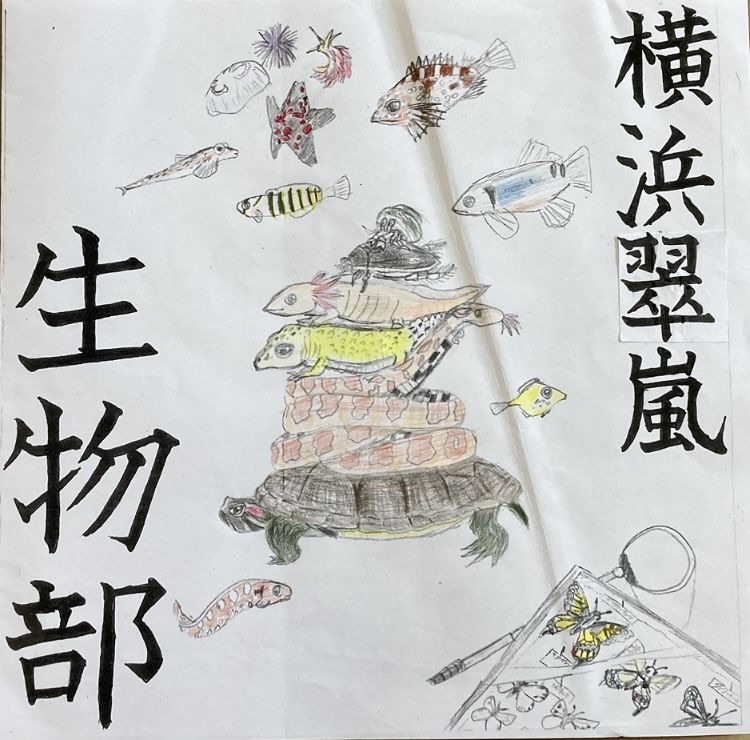 横浜翠嵐
生物部